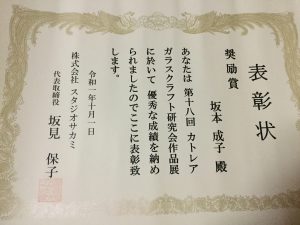 表彰状
奨励賞
坂本 成子 殿
あなたは 第十八回 カトレア
ガラスクラフト研究会作品展
に於いて 優秀な成績を納め
られましたのでここに表彰致
します。
令和一年十月一日
株式会社 スタジオサカミ
代表取締役 坂見 保子